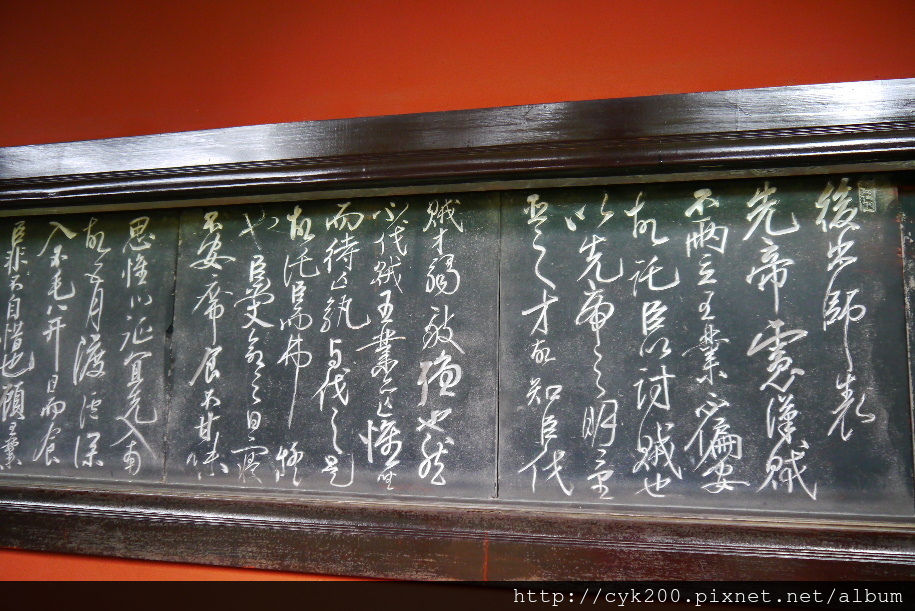 後出師表
先帝慮漢賊
不兩立王業不偏安
故託臣以討賊也
以先帝之明量
臣之才故知臣伐
賊才弱敵強也然
不伐賊王業亦亡惟坐
而待亡孰與伐之是
故託臣而弗疑
也臣受命之日寢
不安席食不甘味
思惟北征宜先入南
故五月渡瀘深
入不毛并日而食
臣非不自惜也顧王業
http://cyk200.pixnet.net/album